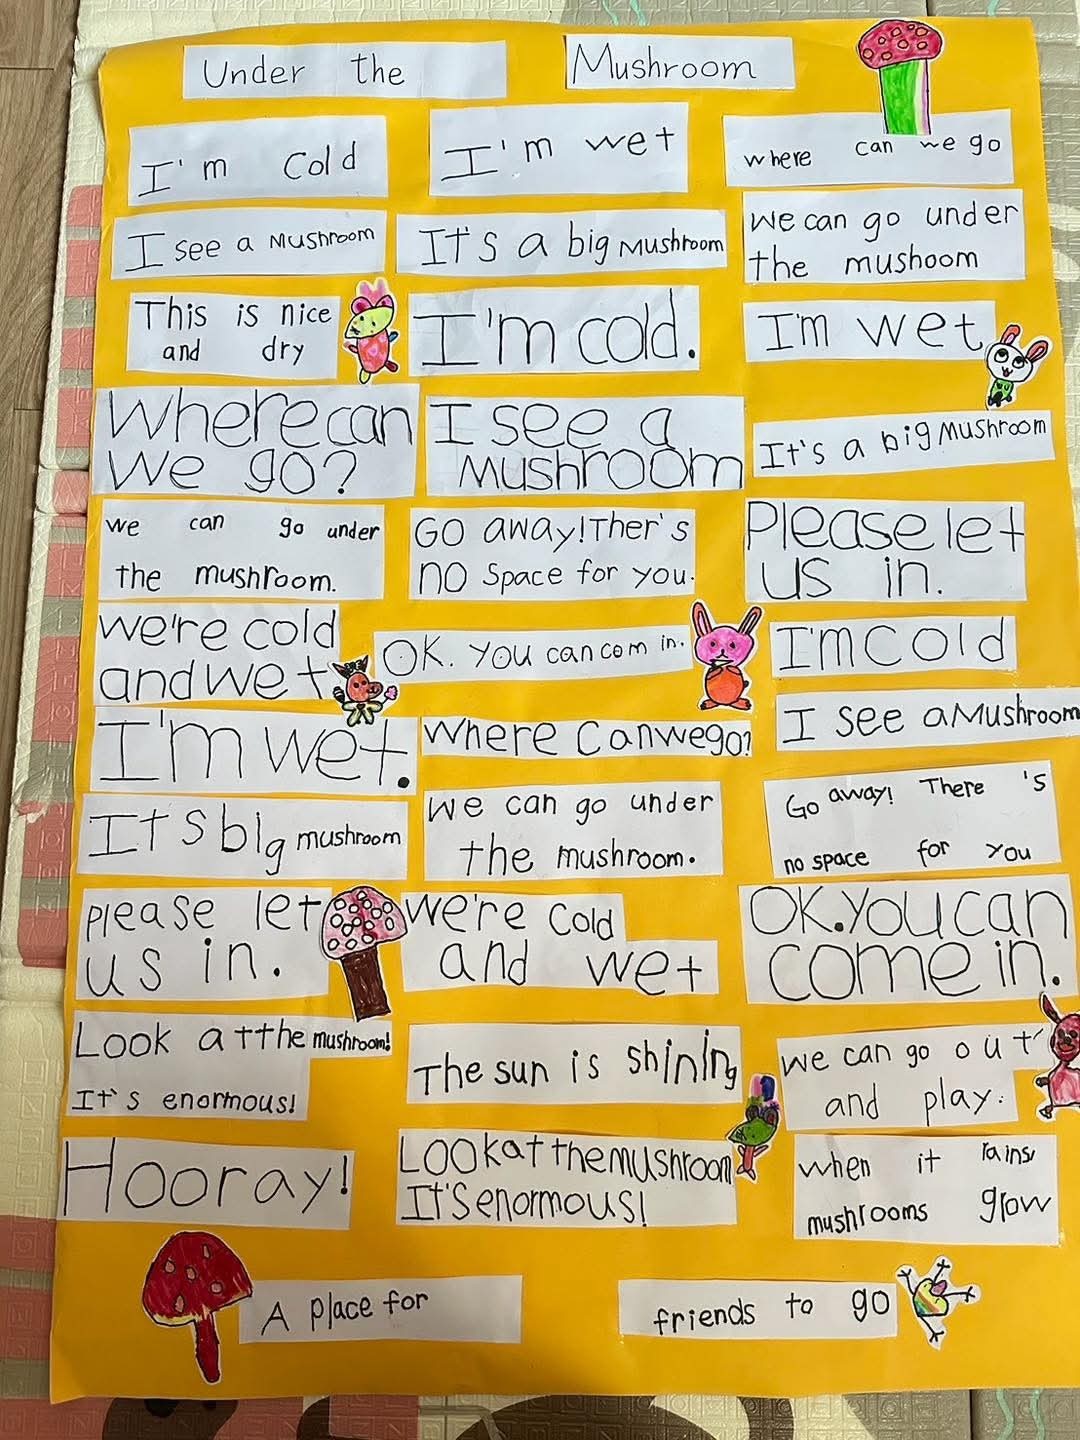 Under the Mushroom
I'm Cold
I'm wet
where can we go
I see a Mushroom
It's a big Mushroom
We can go under
the mushoom
This is nice
and dry
I'm cold.
I'm wet
Where can
We go?
I see a
Mushroom
It's a big Mushroom
we can go under
the mushroom.
GO away! Ther's
no space for you.
Please let
us in.
we're cold
and wet
OK. You can com in.
I'm Cold
I'm wet.
Where can we go?
I see a Mushroom
It s big mushroom
We can go under
the mushroom.
Go away! There 's
no space for you
please let
us in.
we're cold
and wet
OK. You can
come in.
Look at the mushroom!
It's enormous!
The sun is shining
we can go out
and play.
Hooray!
Look at the mushroom
It's enormous!
when it rains,
mushrooms grow
A place for
friends to go